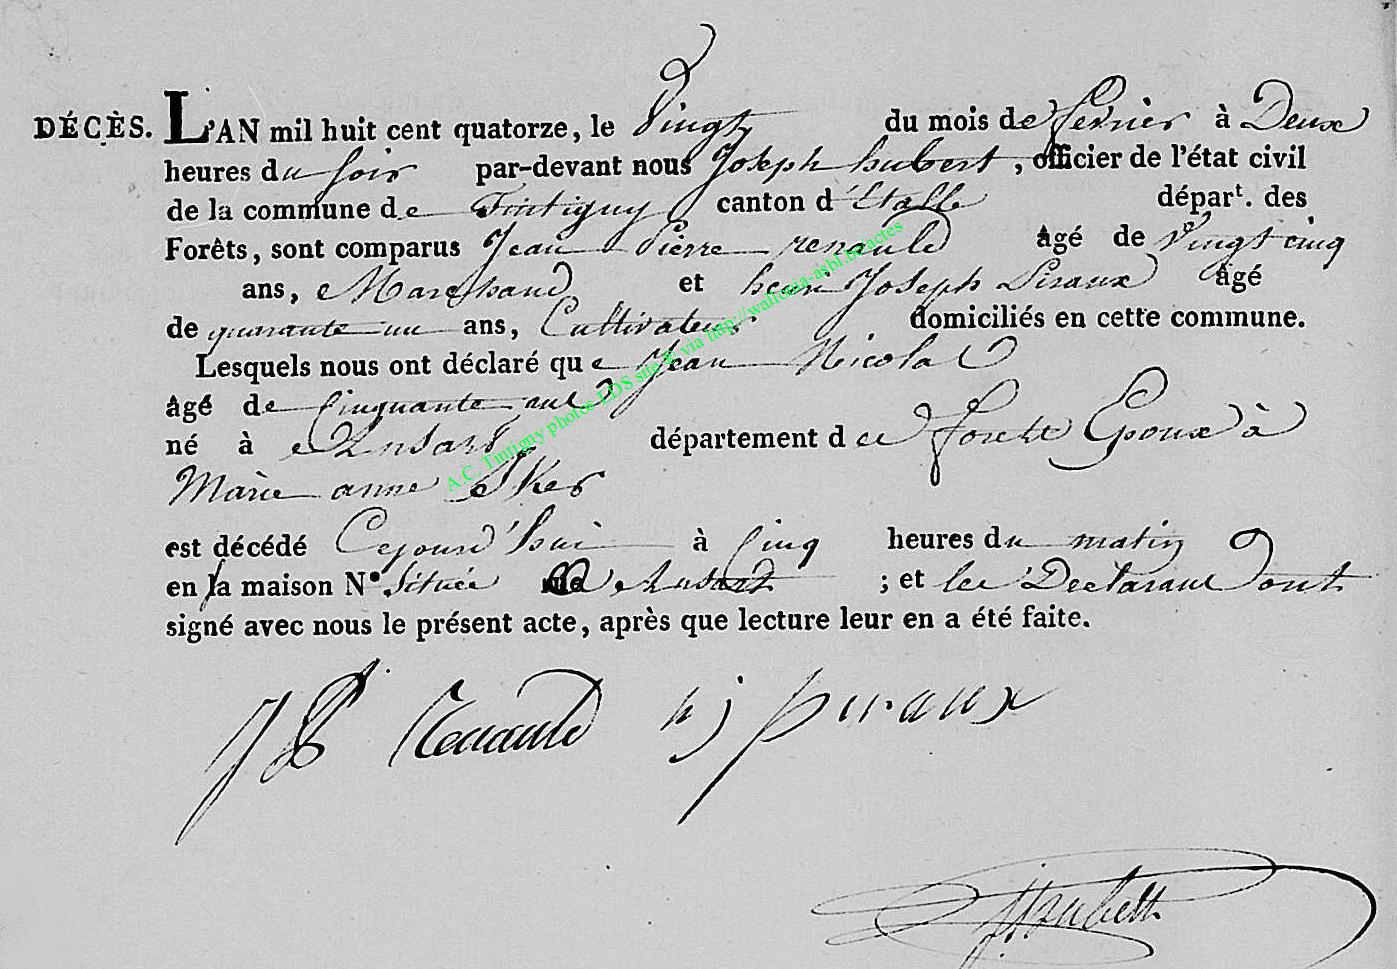 DÉCÈS. L'AN mil huit cent quatorze, le Vingt du mois de fevrier à Deux
heures du soir par-devant nous Joseph hubert, officier de l'état civil
de la commune de Tintigny canton d'Etalle départ. des
Forêts, sont comparus Jean Pierre renauld âgé de vingt cinq
ans, Marchand et henri Joseph Piraux âgé
de quarante un ans, Cultivateur domiciliés en cette commune.
Lesquels nous ont déclaré que Jean Nicola
âgé de Cinquante ans
né à Ansart département de forets Epoux à
Marie anne
est décédé Cejourd'hui à Cinq heures du matin
en la maison N° située a Ansart ; et les Declarans ont
signé avec nous le présent acte, après que lecture leur en a été faite.
JP Renauld hj piraux
JHubert
A.C. Tintigny photos LDS site & via http://wallonia-asbl.be/actes